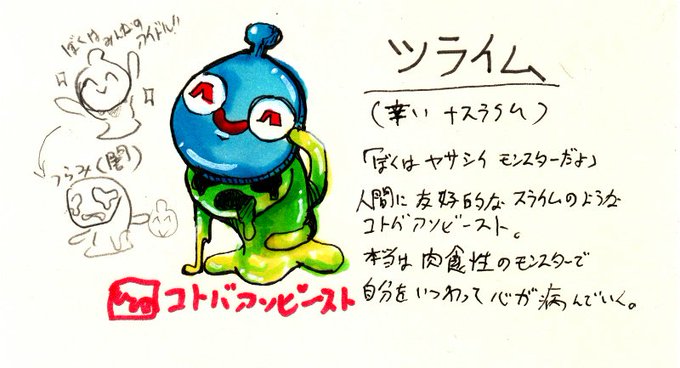 ぼくはみんなの
アイドル!!
うらみ(闇)
ツライム
(辛い+スライム)
「ぼくは ヤサシイ モンスターだよ」
人間に 友好的な スライムのような
コトバアソビースト。
本当は 肉食性のモンスターで
自分をいつわって 心が病んでいく。
コトバアソビースト